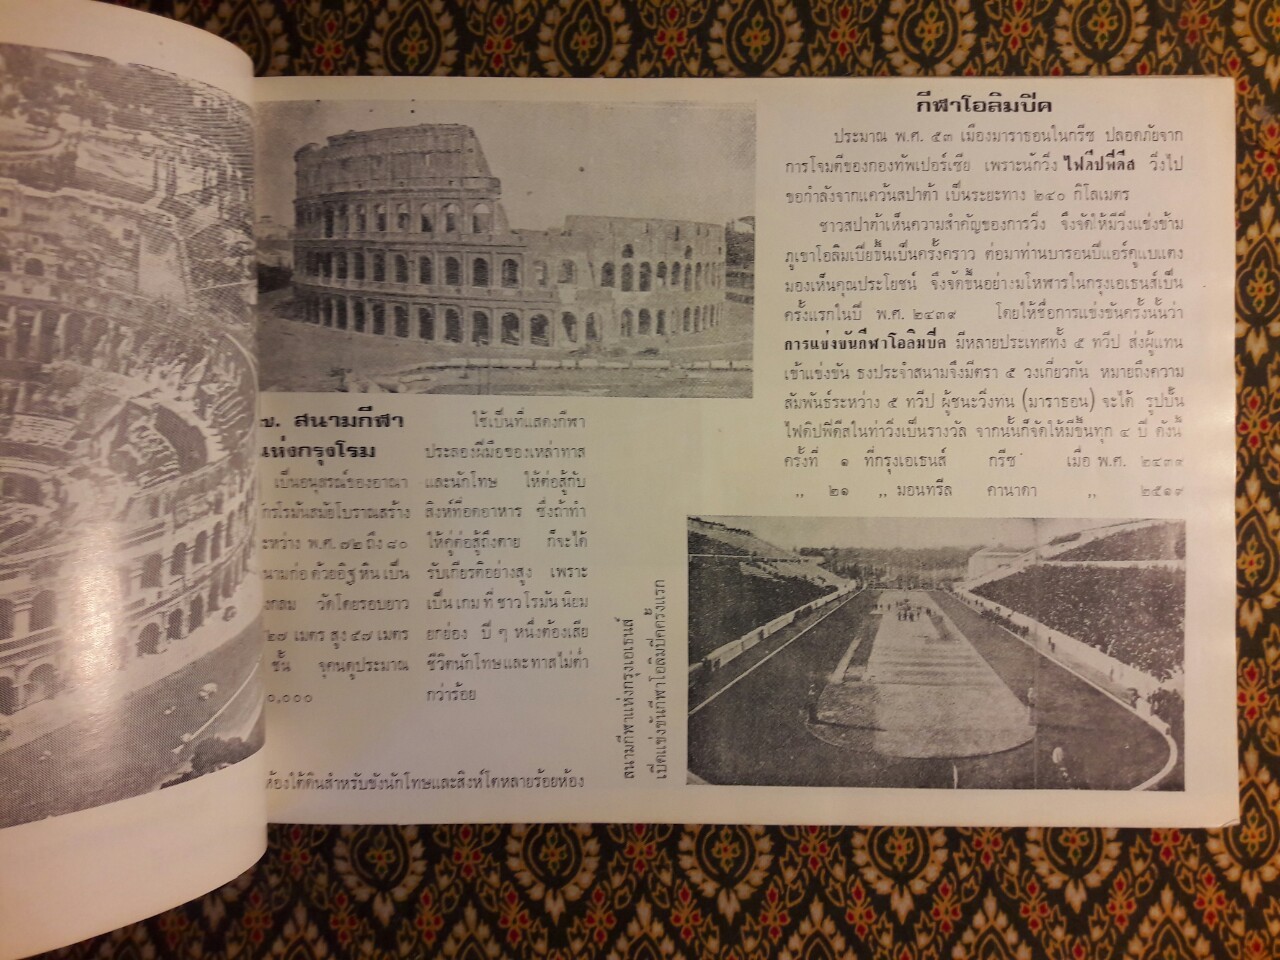 ว. สนามกีฬา
แห่งกรุงโรม
เป็นอนุสรณ์ของอาณา
จักรโรมันสมัยโบราณสร้าง
ระหว่าง พ.ศ. ๗๒ ถึง ๘๐
สนามก่อด้วยอิฐ หิน เป็น
วงกลม วัดโดยรอบยาว
๒๗ เมตร สูง ๔๗ เมตร
ชั้น จุคนดูประมาณ
๐,๐๐๐
ใช้เป็นที่แสดงกีฬา
ประลองฝีมือของเหล่าทาส
และนักโทษ ให้ต่อสู้กับ
สิงห์ที่อดอาหาร ซึ่งถ้าทำ
ให้คู่ต่อสู้ถึงตาย ก็จะได้
รับเกียรติอย่างสูง เพราะ
เป็น เกม ที่ ชาว โรมัน นิยม
ยกย่อง ปี ๆ หนึ่งต้องเสีย
ชีวิตนักโทษและทาสไม่ต่ำ
กว่าร้อย
ห้องใต้ดินสำหรับขังนักโทษและสิงห์โตหลายร้อยห้อง
กีฬาโอลิมปิค
ประมาณ พ.ศ. ๕๓ เมืองมาราธอนในกรีซ ปลอดภัยจาก
การโจมตีของกองทัพเปอร์เซีย เพราะนักวิ่ง ไฟดีปพีดีส วิ่งไป
ขอกำลังจากแคว้นสปาต้า เป็นระยะทาง ๒๔๐ กิโลเมตร
ชาวสปาต้าเห็นความสำคัญของการวิ่ง จึงจัดให้มีวิ่งแข่งข้าม
ภูเขาโอลิมเปียขึ้นเป็นครั้งคราว ต่อมาท่านบารอนปีแอร์คูแบแตง
มองเห็นคุณประโยชน์ จึงจัดขึ้นอย่างมโหฬารในกรุงเอเธนส์เป็น
ครั้งแรกในปี พ.ศ. ๒๔๓๙ โดยให้ชื่อการแข่งขันครั้งนั้นว่า
การแข่งขันกีฬาโอลิมปิค มีหลายประเทศทั้ง ๕ ทวีป ส่งผู้แทน
เข้าแข่งขัน ธงประจำสนามจึงมีตรา ๕ วงเกี่ยวกัน หมายถึงความ
สัมพันธ์ระหว่าง ๕ ทวีป ผู้ชนะวิ่งทน (มาราธอน) จะได้ รูปปั้น
ไฟดิปพีดีสในท่าวิ่งเป็นรางวัล จากนั้นก็จัดให้มีขึ้นทุก ๔ ปี ดังนี้
ครั้งที่ ๑ ที่กรุงเอเธนส์ กรีซ เมื่อ พ.ศ. ๒๔๓๙
,, ๒๑ ,, มอนทรีล คานาดา ,, ๒๕๑๙
สนามกีฬาแห่งกรุงเอเธนส์
เปิดแข่งขันกีฬาโอลิมปิคครั้งแรก